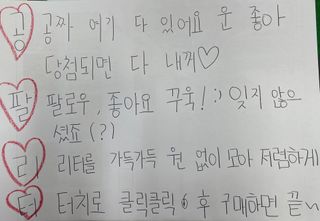 공 공짜 여기 다 있어요 운 좋아
당첨되면 다 내꺼♡
팔 팔로우, 좋아요 꾸욱! :) 잊지 않으
셨죠(?)
리 리터를 가득가득 원 없이 모아 저렴하게
터 터치로 클릭클릭 후 구매하면 끝~